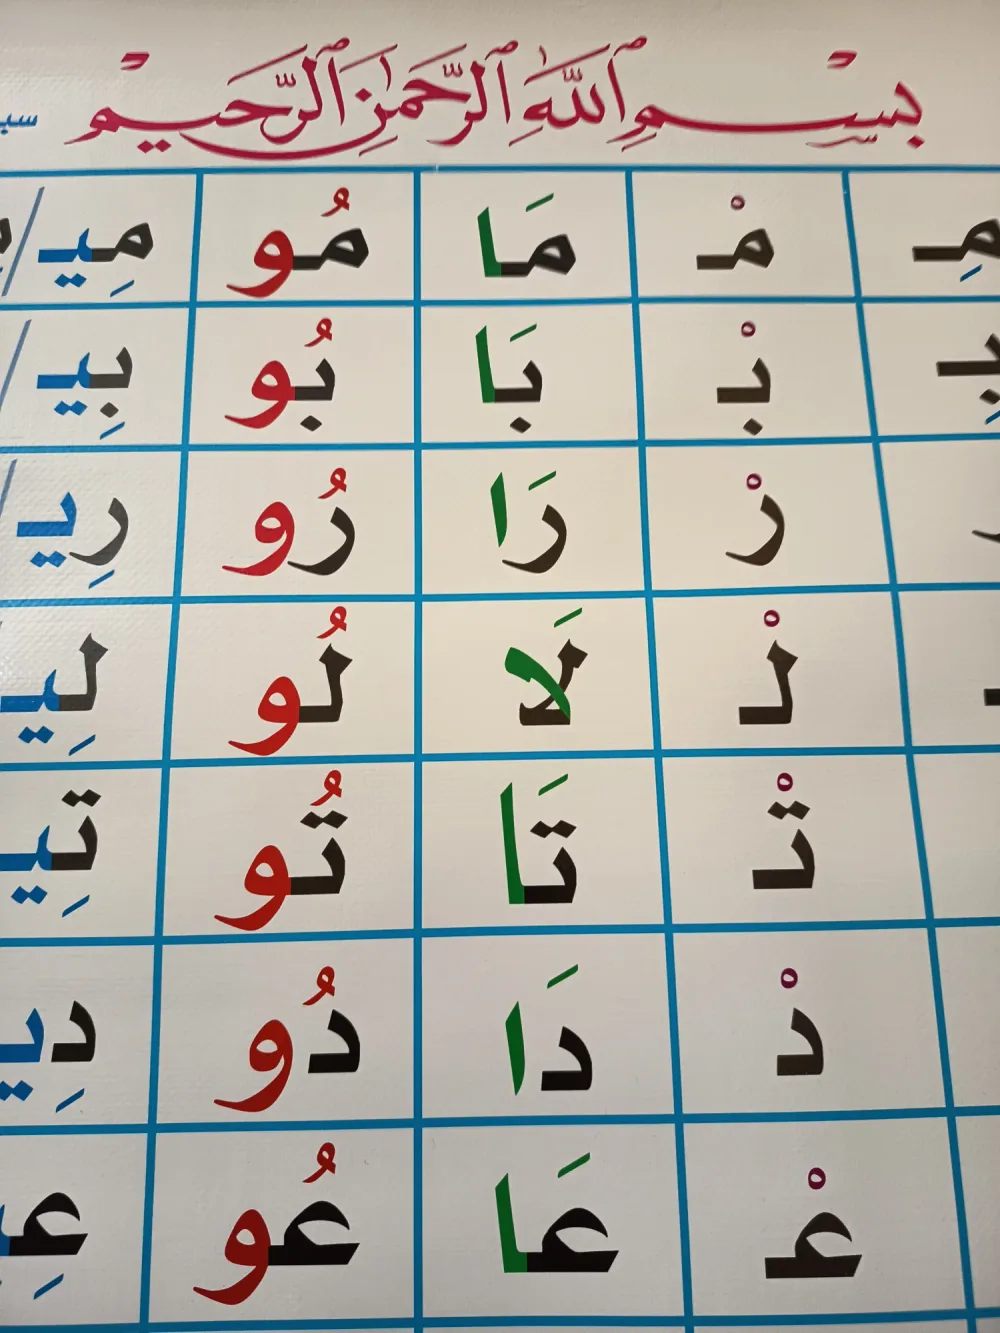 بِسْمِ ٱللَّهِ ٱلرَّحْمَٰنِ ٱلرَّحِيمِ
مِـ مْـ مَا مُو مِيـ /
بِـ بْـ بَا بُو بِيـ /
رْ رَا رُو رِيـ /
لْـ لَا لُو لِيـ
تْـ تَا تُو تِيـ
دْ دَا دُو دِيـ
عْـ عَا عُو عِيـ